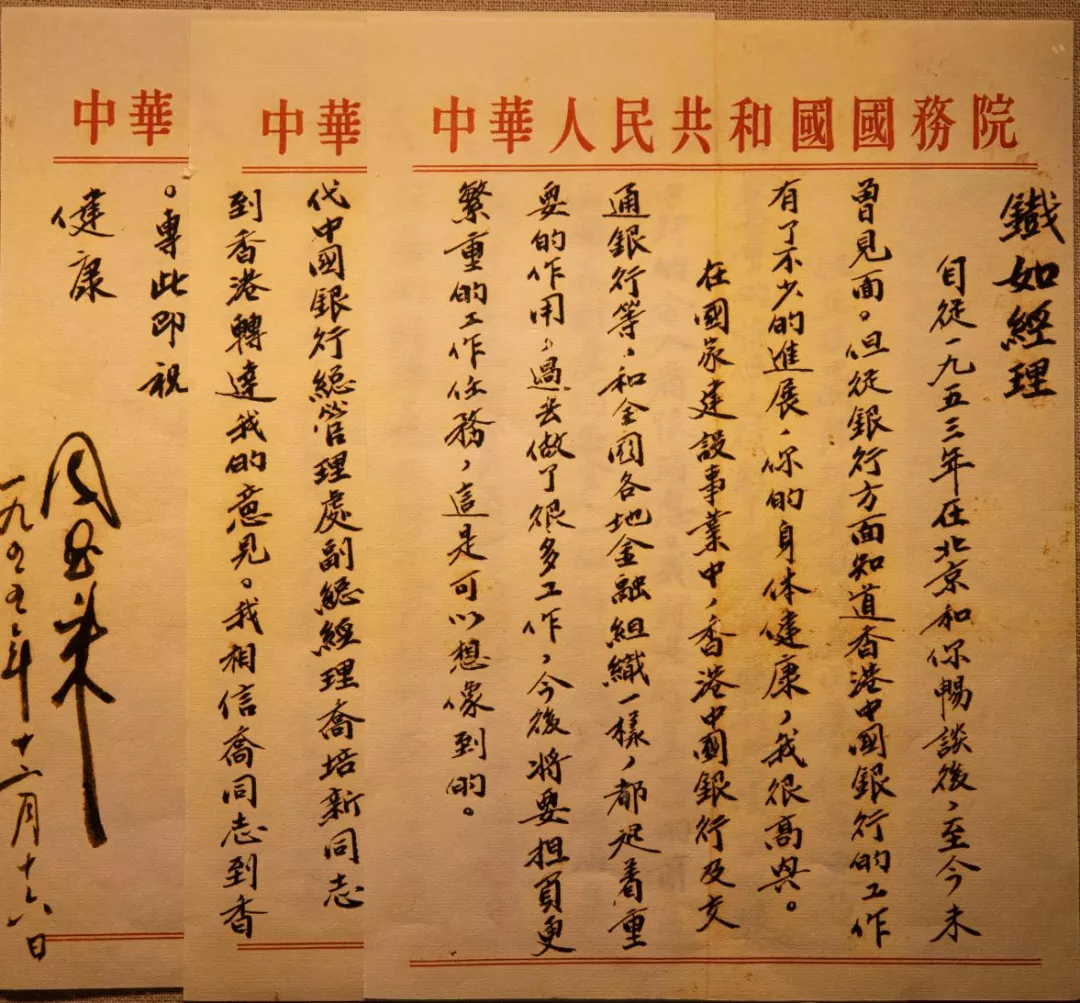 中華人民共和國國務院
鐵如經理
自從一九五三年在北京和你暢談後，至今未
曾見面。但從銀行方面知道香港中國銀行的工作
有了不少的進展，你的身体健康，我很高興。
在國家建設事業中，香港中國銀行及交
通銀行等，和全國各地金融組織一樣，都起着重
要的作用，過去做了很多工作，今後將要担負更
繁重的工作任務，這是可以想像到的。
中華
代中國銀行總管理處副總經理喬培新同志
到香港轉達我的意見。我相信喬同志到香
中華
。專此即祝
健康
周恩来
一九五五年十二月十六日